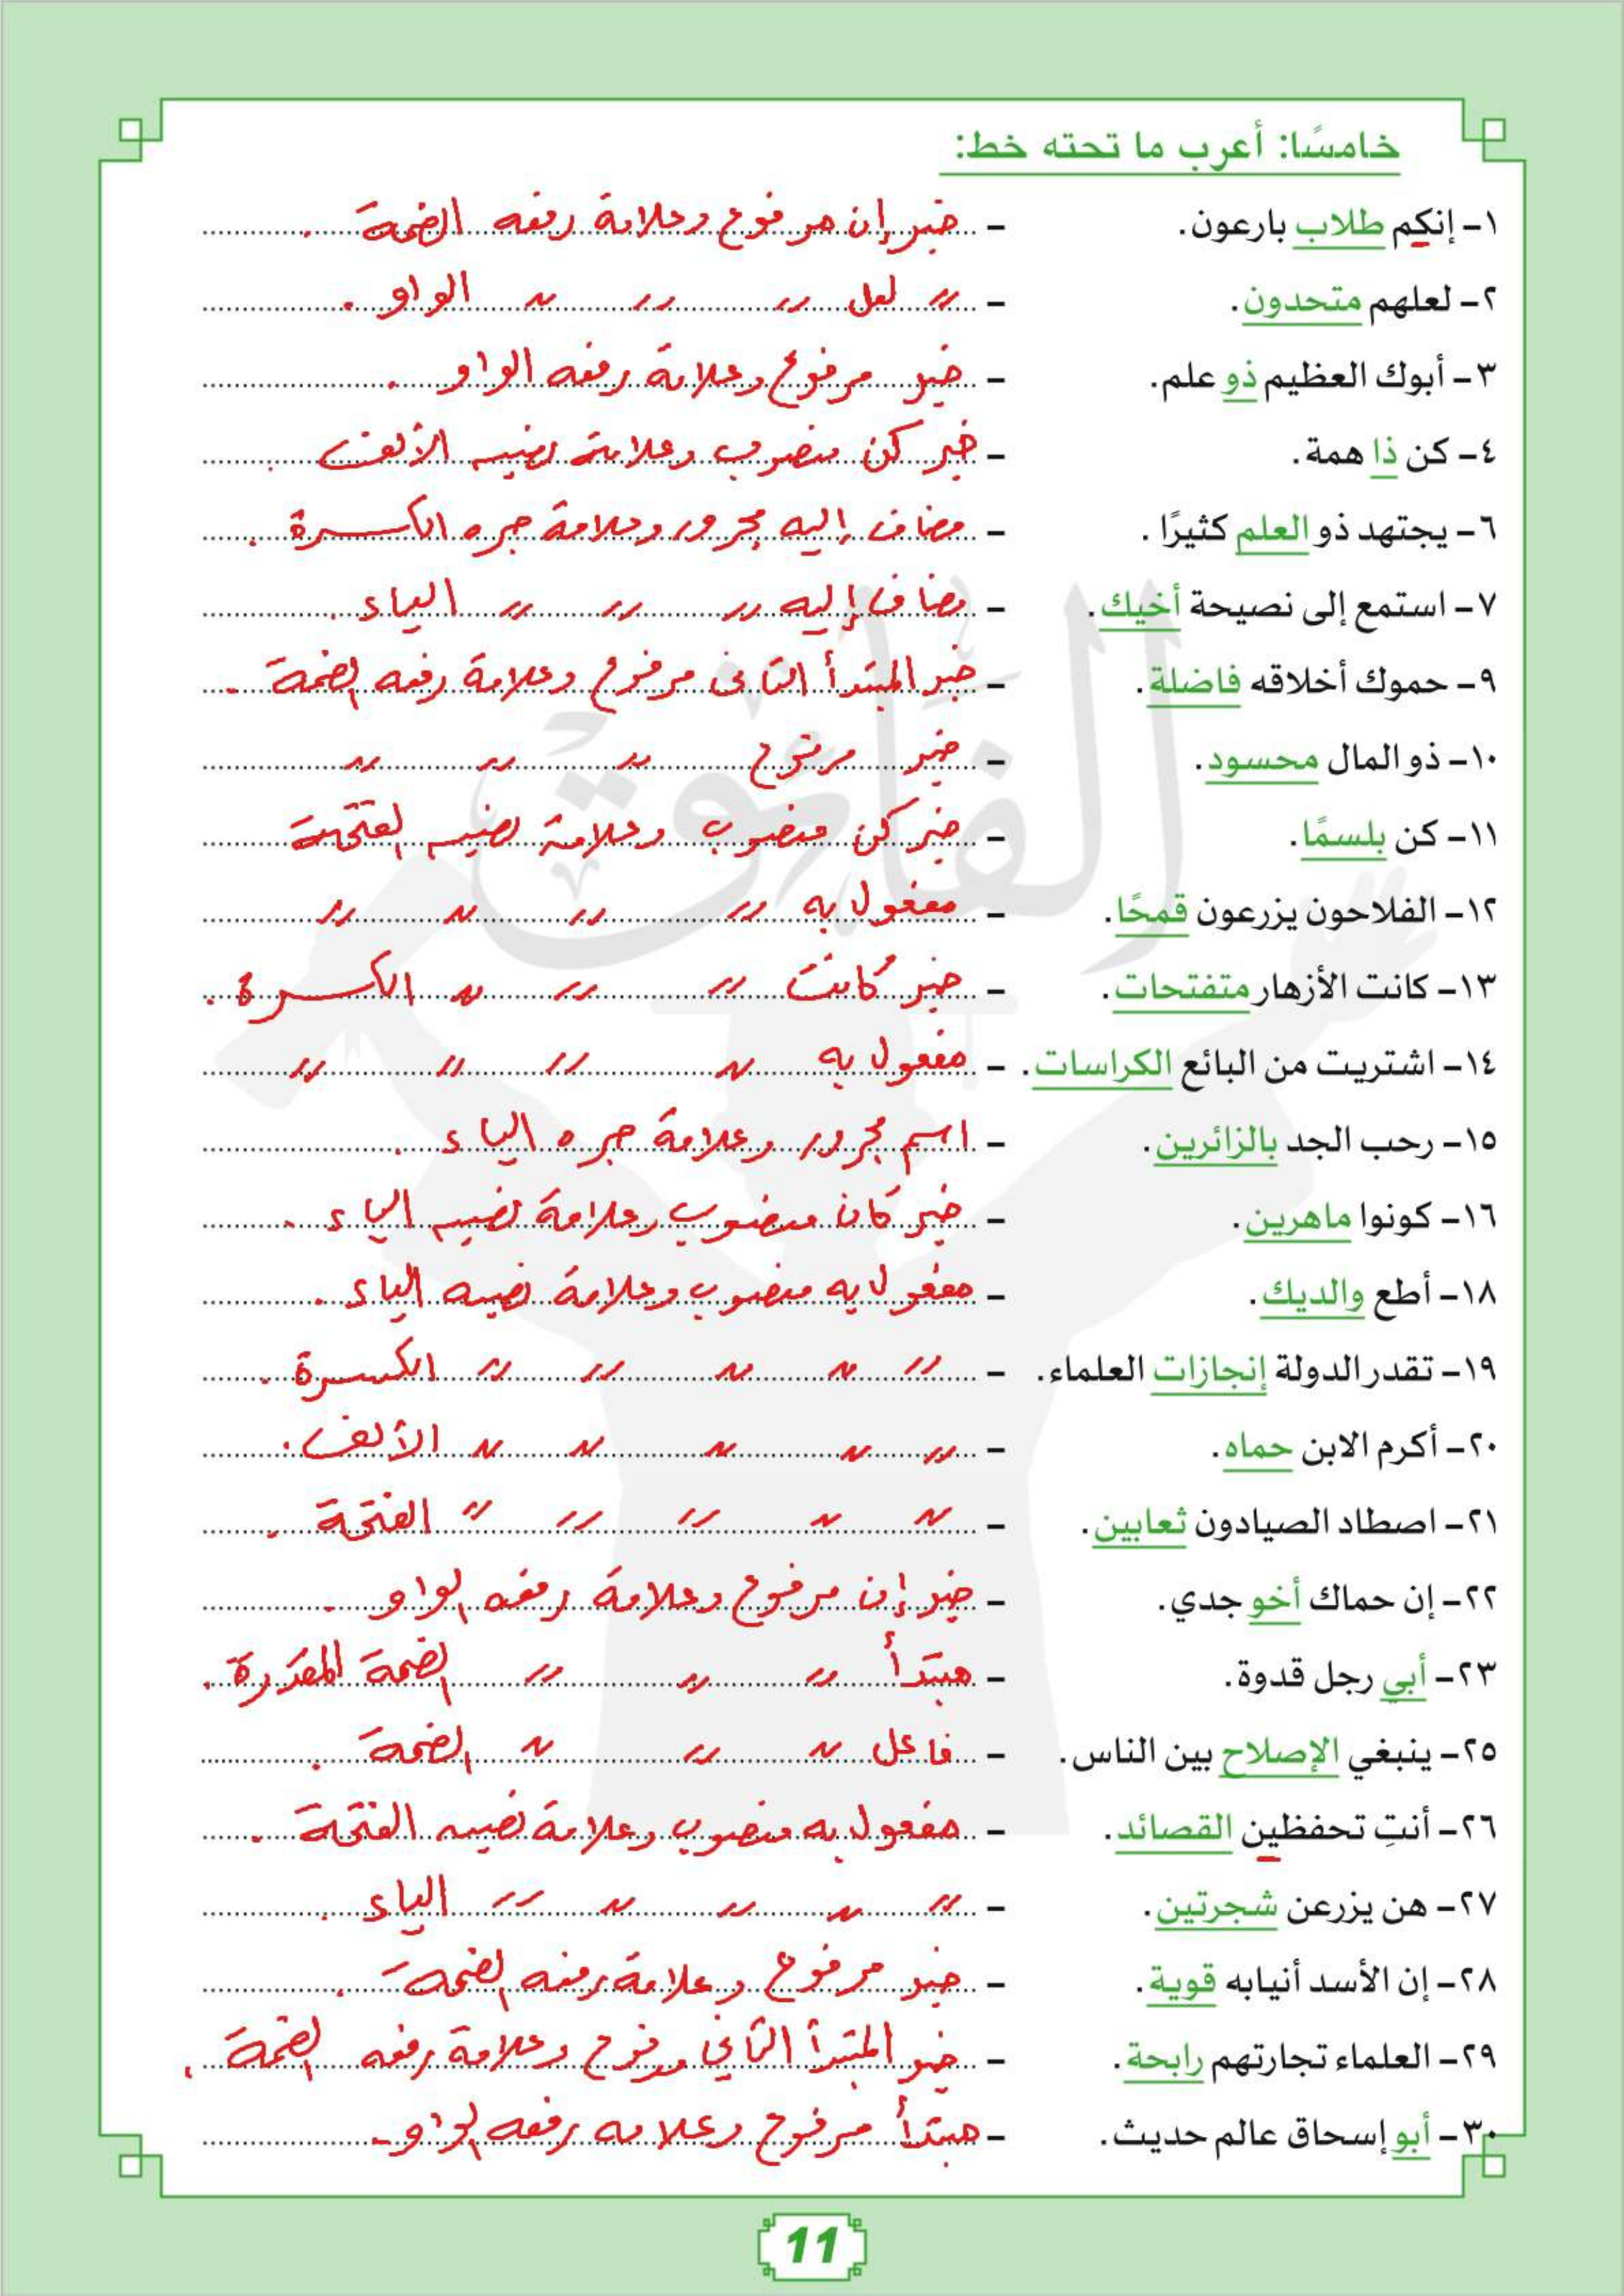 خامسًا: أعرب ما تحته خط:
١- إنكم طلاب بارعون. - خبر إن مرفوع وعلامة رفعه الضمة .
٢- لعلهم متحدون. - 〃 لعل 〃 〃 〃 الواو .
٣- أبوك العظيم ذو علم. - خبر مرفوع وعلامة رفعه الواو .
٤- كن ذا همة. - خبر كن منصوب وعلامة نصبه الألف .
٦- يجتهد ذو العلم كثيرًا . - مضاف إليه مجرور وعلامة جره الكسرة .
٧- استمع إلى نصيحة أخيك. - مضاف إليه 〃 〃 〃 الياء .
٩- حموك أخلاقه فاضلة. - خبر المبتدأ الثاني مرفوع وعلامة رفعه الضمة .
١٠- ذو المال محسود. - خبر مرفوع 〃 〃 〃
١١- كن بلسمًا. - خبر كن منصوب وعلامة نصبه الفتحة
١٢- الفلاحون يزرعون قمحًا. - مفعول به 〃 〃 〃 〃
١٣- كانت الأزهار متفتحات. - خبر كانت 〃 〃 〃 الكسرة .
١٤- اشتريت من البائع الكراسات. - مفعول به 〃 〃 〃 〃
١٥- رحب الجد بالزائرين. - اسم مجرور وعلامة جره الياء .
١٦- كونوا ماهرين. - خبر كان منصوب وعلامة نصبه الياء .
١٨- أطع والديك. - مفعول به منصوب وعلامة نصبه الياء .
١٩- تقدر الدولة إنجازات العلماء. - 〃 〃 〃 〃 〃 الكسرة .
٢٠- أكرم الابن حماه. - 〃 〃 〃 〃 〃 الألف .
٢١- اصطاد الصيادون ثعابين. - 〃 〃 〃 〃 〃 الفتحة .
٢٢- إن حماك أخو جدي. - خبر إن مرفوع وعلامة رفعه الواو .
٢٣- أبي رجل قدوة. - مبتدأ 〃 〃 〃 الضمة المقدرة .
٢٥- ينبغي الإصلاح بين الناس. - فاعل 〃 〃 〃 الضمة .
٢٦- أنتِ تحفظين القصائد. - مفعول به منصوب وعلامة نصبه الفتحة .
٢٧- هن يزرعن شجرتين. - 〃 〃 〃 〃 〃 الياء .
٢٨- إن الأسد أنيابه قوية. - خبر مرفوع وعلامة رفعه الضمة .
٢٩- العلماء تجارتهم رابحة. - خبر المبتدأ الثاني مرفوع وعلامة رفعه الضمة .
٣٠- أبو إسحاق عالم حديث. - مبتدأ مرفوع وعلامة رفعه الواو .
الفائق
11